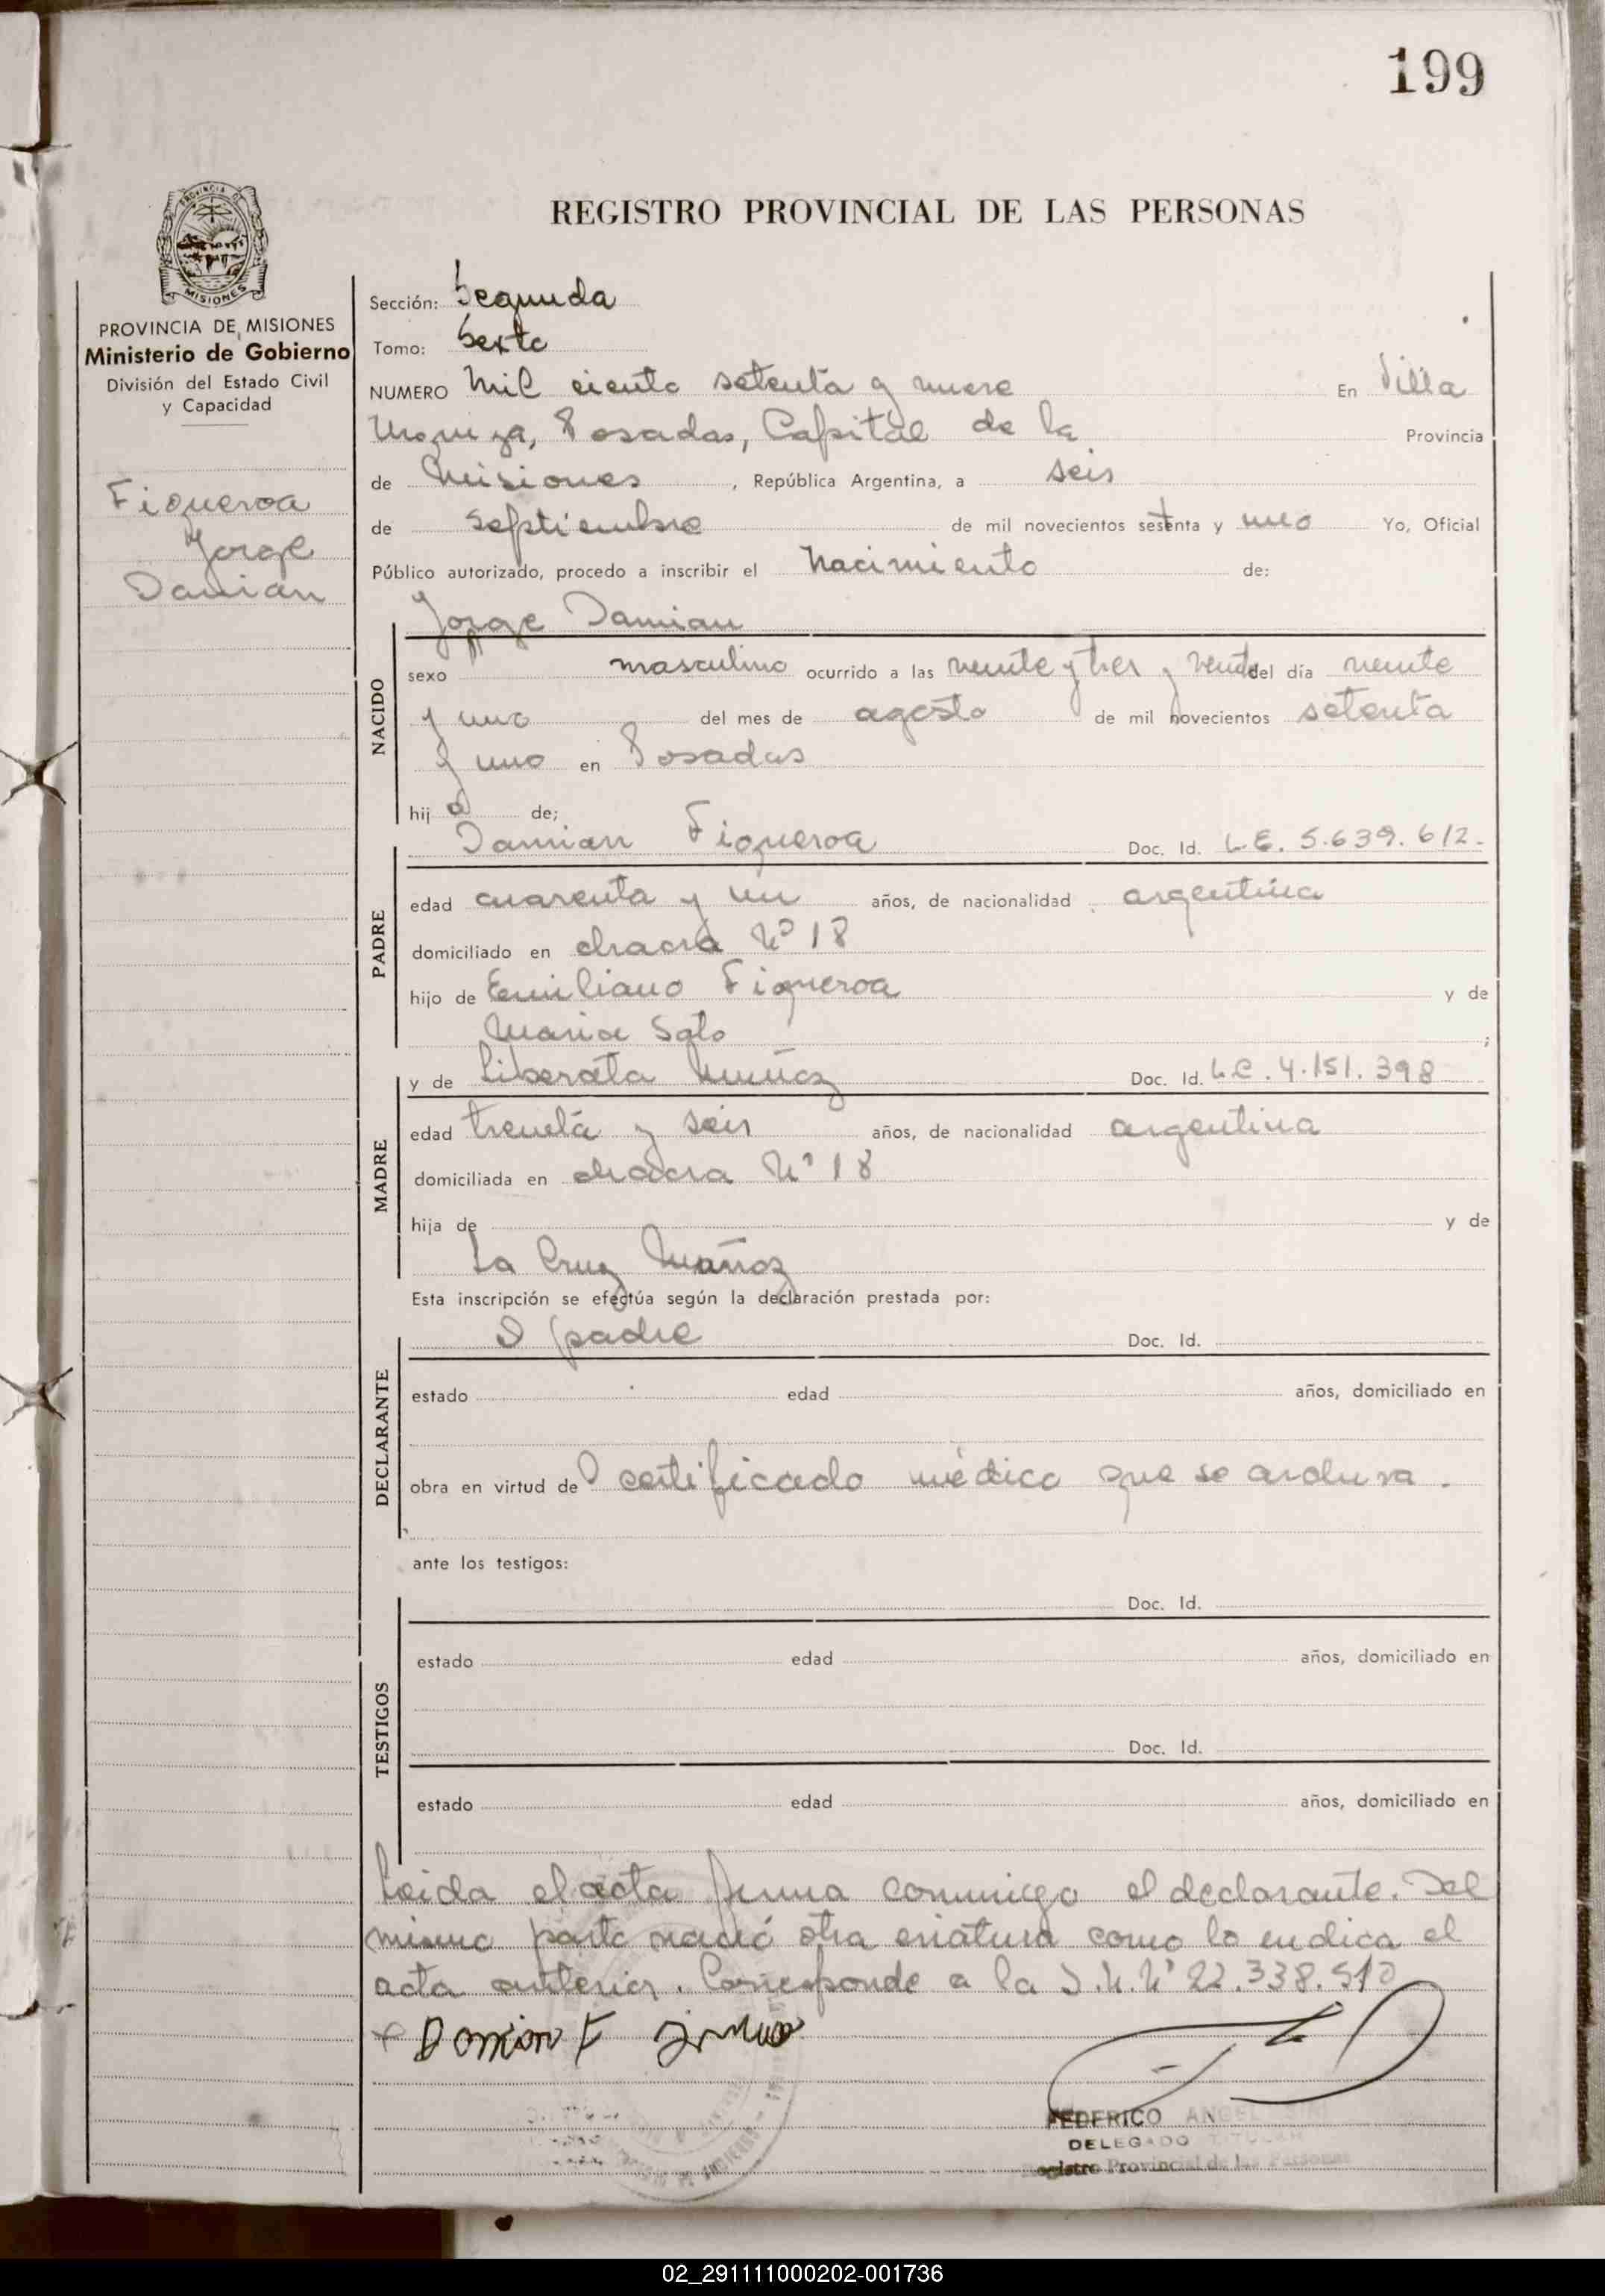 199
REGISTRO PROVINCIAL DE LAS PERSONAS
PROVINCIA DE MISIONES
MISIONES
PROVINCIA DE MISIONES
Ministerio de Gobierno
División del Estado Civil
y Capacidad
Figueroa
Jorge
Damian
Sección: Segunda
Tomo: Sexto
NUMERO Mil ciento setenta y nueve En Villa
Urquiza, Posadas, Capital de la Provincia
de Misiones, República Argentina, a seis
de septiembre de mil novecientos setenta y uno Yo, Oficial
Público autorizado, procedo a inscribir el Nacimiento de:
Jorge Damian
NACIDO
sexo masculino ocurrido a las veinte y tres y del día veinte
y uno del mes de agosto de mil novecientos setenta
y uno en Posadas
hij o de;
Damian Figueroa Doc. Id. L.E. 5.639.612.
PADRE
edad cuarenta y un años, de nacionalidad argentina
domiciliado en chacra Nº 18
hijo de Emiliano Figueroa y de
Maria Soto ;
y de Liberata Muñoz Doc. Id. L.C. 4.151.398
MADRE
edad treinta y seis años, de nacionalidad argentina
domiciliada en chacra Nº 18
hija de y de
La Cruz Muñoz
Esta inscripción se efectúa según la declaración prestada por:
El padre Doc. Id.
DECLARANTE
estado edad años, domiciliado en
obra en virtud de certificado médico que se archiva.
ante los testigos:
Doc. Id.
TESTIGOS
estado edad años, domiciliado en
Doc. Id.
estado edad años, domiciliado en
Leida el acta firma conmigo el declarante. Del
mismo parto nació otra criatura como lo indica el
acta anterior. Corresponde a la 22.338.510
FEDERICO ANGEL
DELEGADO TITULAR
Registro Provincial de las Personas
02_291111000202-001736